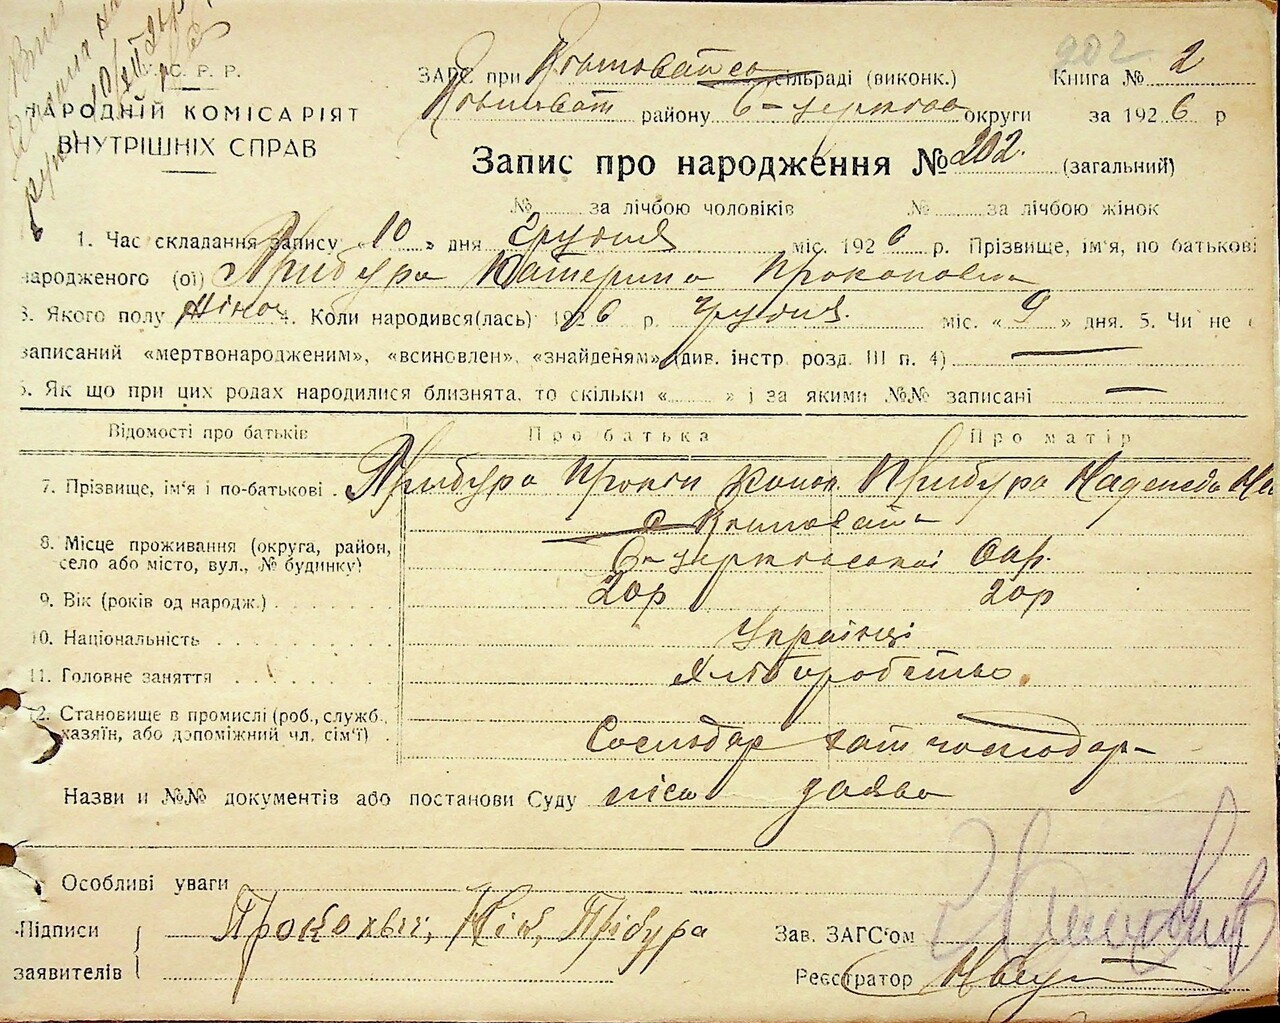 У. С. Р. Р.
НАРОДНІЙ КОМІСАРІЯТ
ВНУТРІШНІХ СПРАВ
202
ЗАГС при сільраді (виконк.) Книга № 2
району Б-церков округи за 1926 р
Запис про народження № 202. (загальний)
№ за лічбою чоловіків № за лічбою жінок
1. Час складання запису « 10 » дня Грудня міс. 1926 р. Прізвище, ім'я, по батькові
народженого (ої) Прибура Катерина Прокоповна
3. Якого полу жіноч 4. Коли народився(лась) 1926 р. Грудня міс. « 9 » дня. 5. Чи не
записаний «мертвонародженим», «всиновлен», «знайденям» (див. інстр. розд. III п. 4) —
6. Як що при цих родах народилися близнята, то скільки « » і за якими №№ записані —
Відомості про батьків Про батька Про матір
7. Прізвище, ім'я і по-батькові Прибура Прокіп Прибура Надежда
8. Місце проживання (округа, район,
село або місто, вул., № будинку) Б-церковської Окр.
9. Вік (років од народж.) 20р 20р
10. Національність Українці
11. Головне заняття Хліборобство.
12. Становище в промислі (роб., служб.,
хазяїн, або допоміжний чл. сім'ї) Господар господар-
Назви и №№ документів або постанови Суду
Особливі уваги
Підписи Прібура Зав. ЗАГС'ом
заявителів Реєстратор